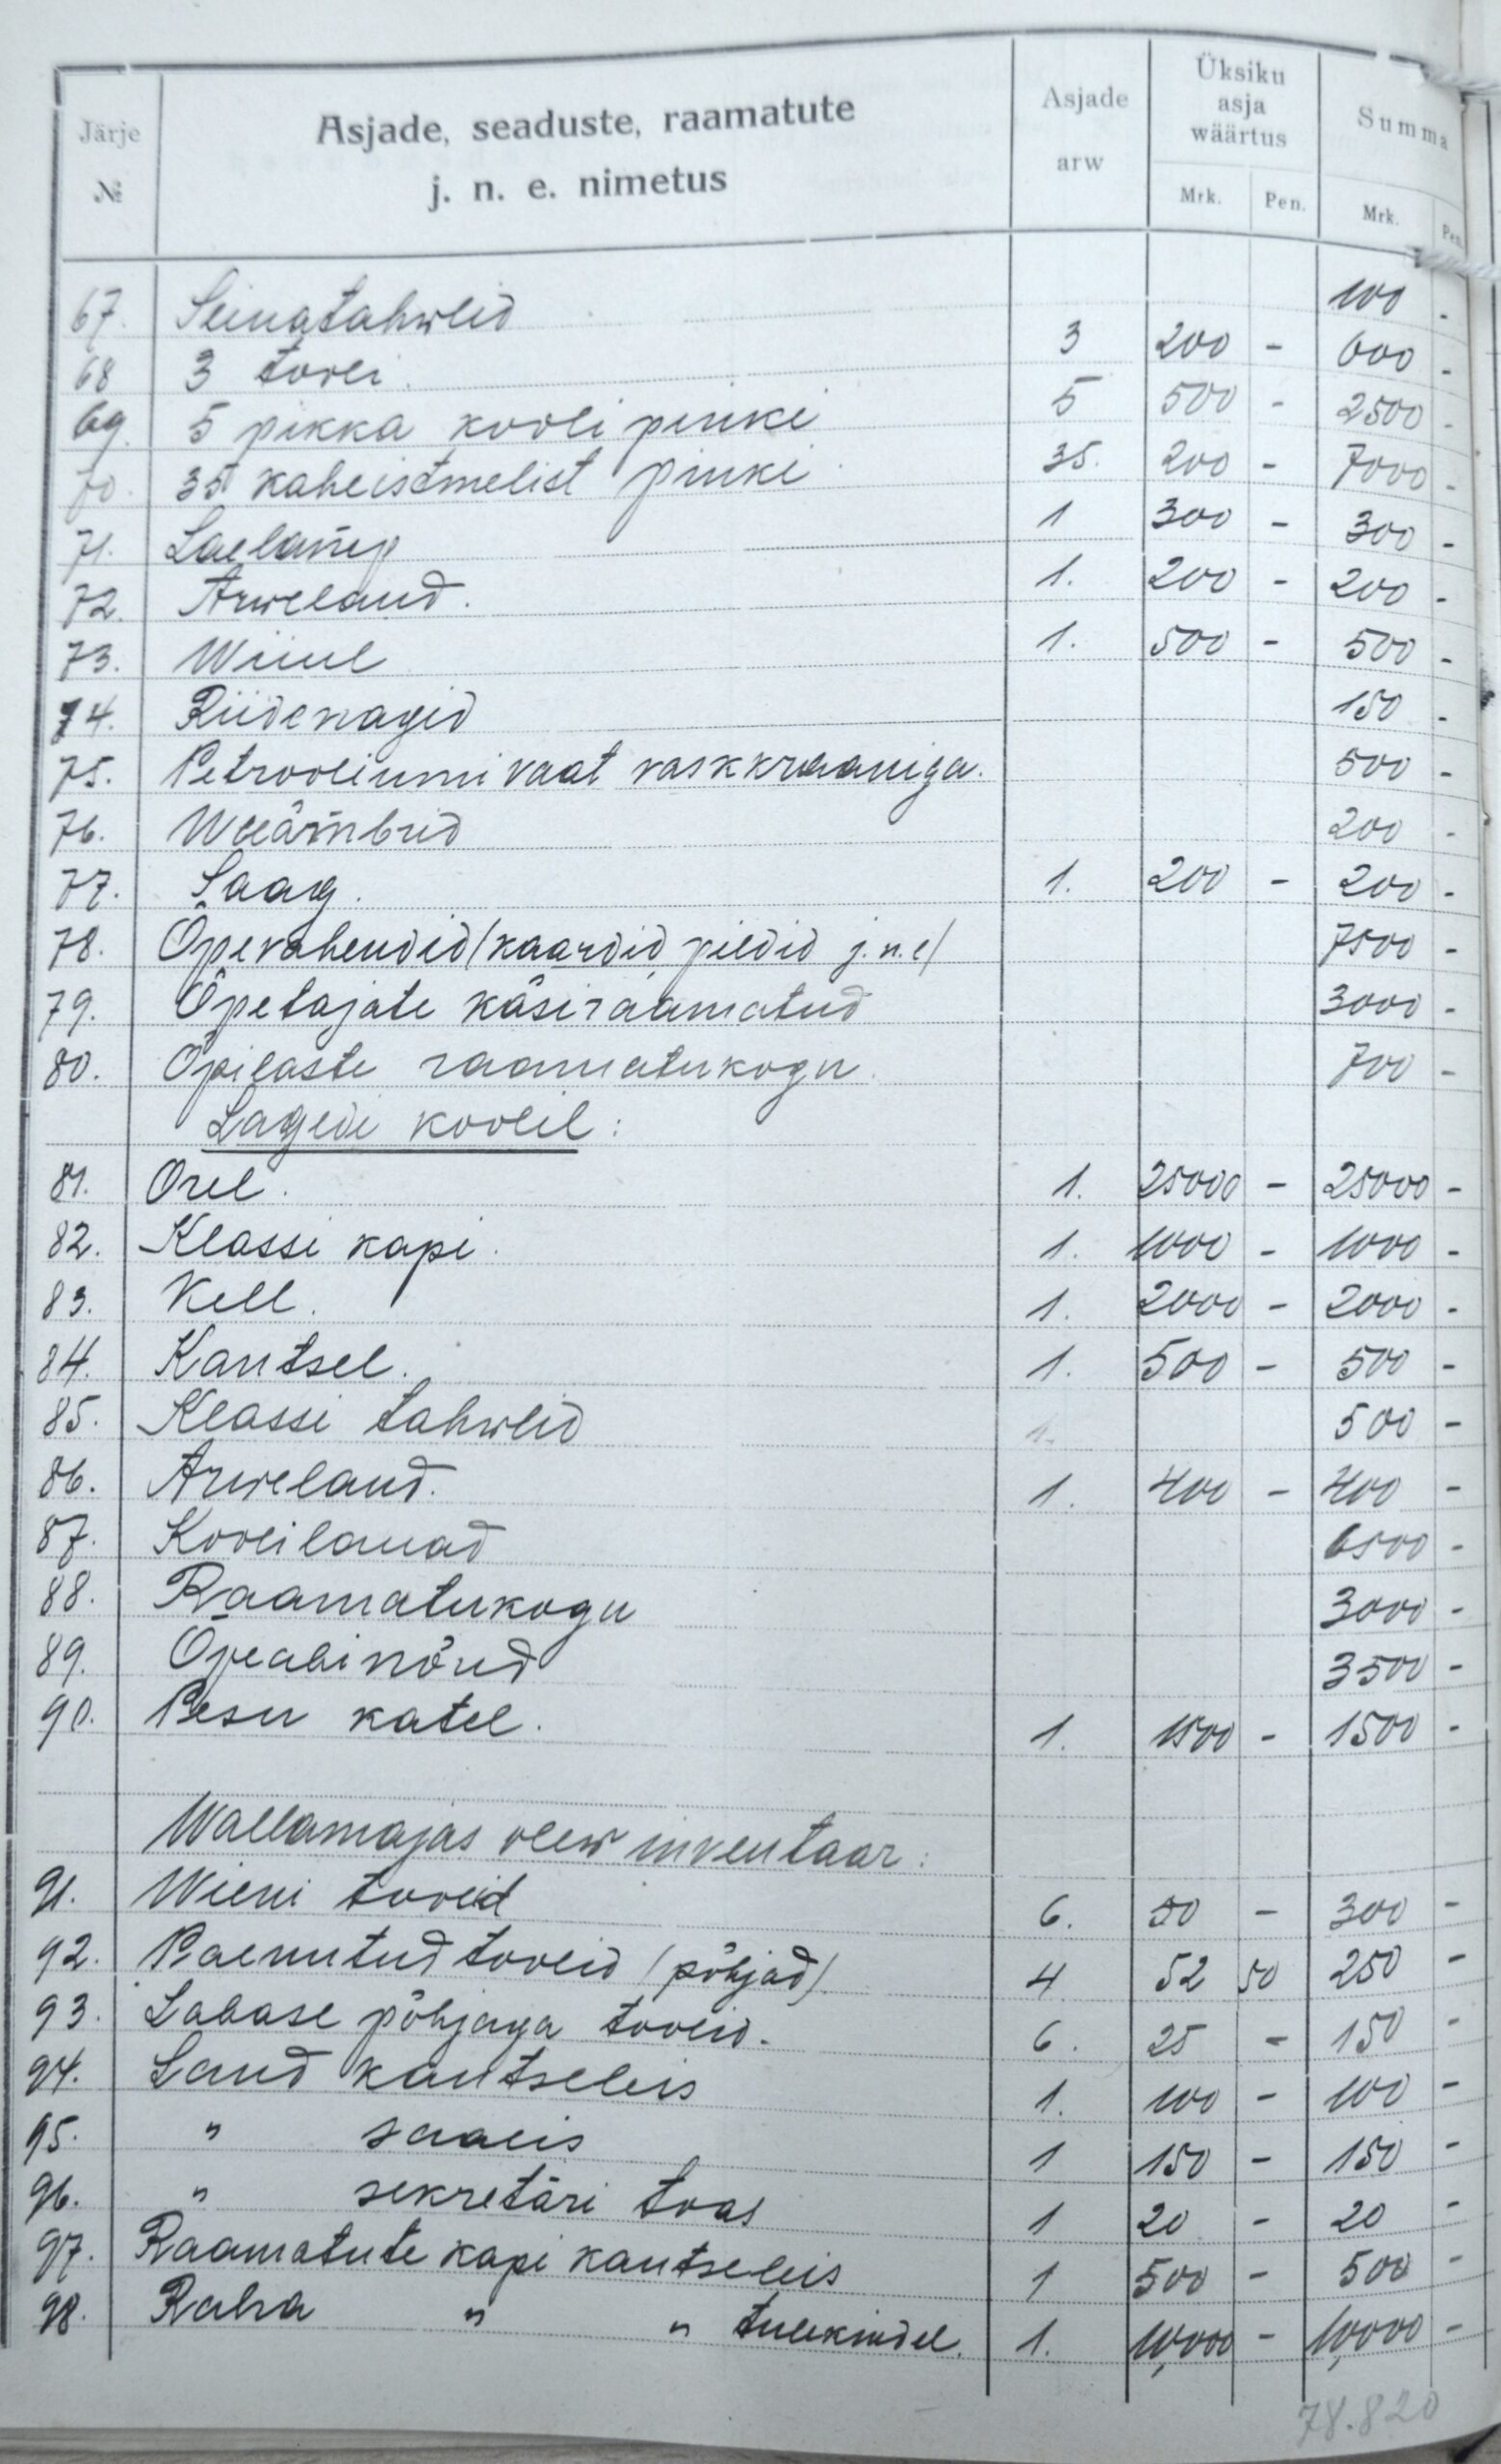 Järje № Asjade, seaduste, raamatute j. n. e. nimetus Asjade arw Üksiku asja wäärtus Mrk. Pen. Summa Mrk. Pen.
67. Seinatahwlid 100 -
68 3 tooli. 3 200 - 600 -
69. 5 pikka kooli pinki 5 500 - 2500 -
70. 35 kaheistmelist pinki 35. 200 - 7000 -
71. Laelamp 1 300 - 300 -
72. Arwelaud. 1. 200 - 200 -
73. Wiiul 1. 500 - 500 -
74. Riidenagid 150 -
75. Petrooliumi vaat vaskkraaniga. 500 -
76. Weeämbrid 200 -
77. Saag. 1. 200 - 200 -
78. Õpevahendid /kaardid pildid j.n.e/ 7500 -
79. Õpetajate käsiraamatud 3000 -
80. Õpilaste raamatukogu. 700 -
Lagedi koolil:
81. Orel. 1. 25000 - 25000 -
82. Klassi kapi. 1. 1000 - 1000 -
83. Kell. 1. 2000 - 2000 -
84. Kantsel. 1. 500 - 500 -
85. Klassi tahwlid 1. 500 -
86. Arwelaud. 1. 400 - 400 -
87. Koolilauad 6500 -
88. Raamatukogu 3000 -
89. Õpeabinõud 3500 -
90. Pesu katel. 1. 1500 - 1500 -
Wallamajas olew inventaar:
91. Wieni toolid 6. 50 - 300 -
92. Paenutud toolid /põhjad/. 4 52 50 250 -
93. Labase põhjaga toolid. 6. 25 - 150 -
94. Laud kantseleis 1. 100 - 100 -
95. " saalis 1 150 - 150 -
96. " sekretäri toas 1 20 - 20 -
97. Raamatute kapi kantseleis 1 500 - 500 -
98. Raha " " tulekindel. 1. 10,000 - 10,000 -
78.820